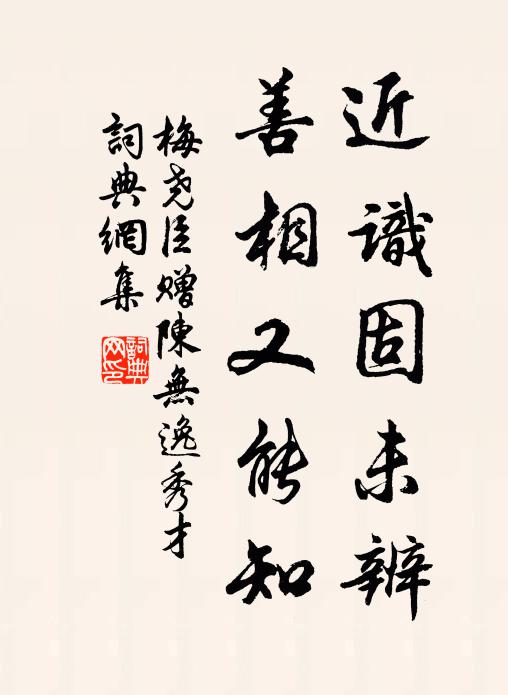 近識固未辨
善相又能知
梅尧臣赠陳無逸秀才
詞典網集
詞典網印